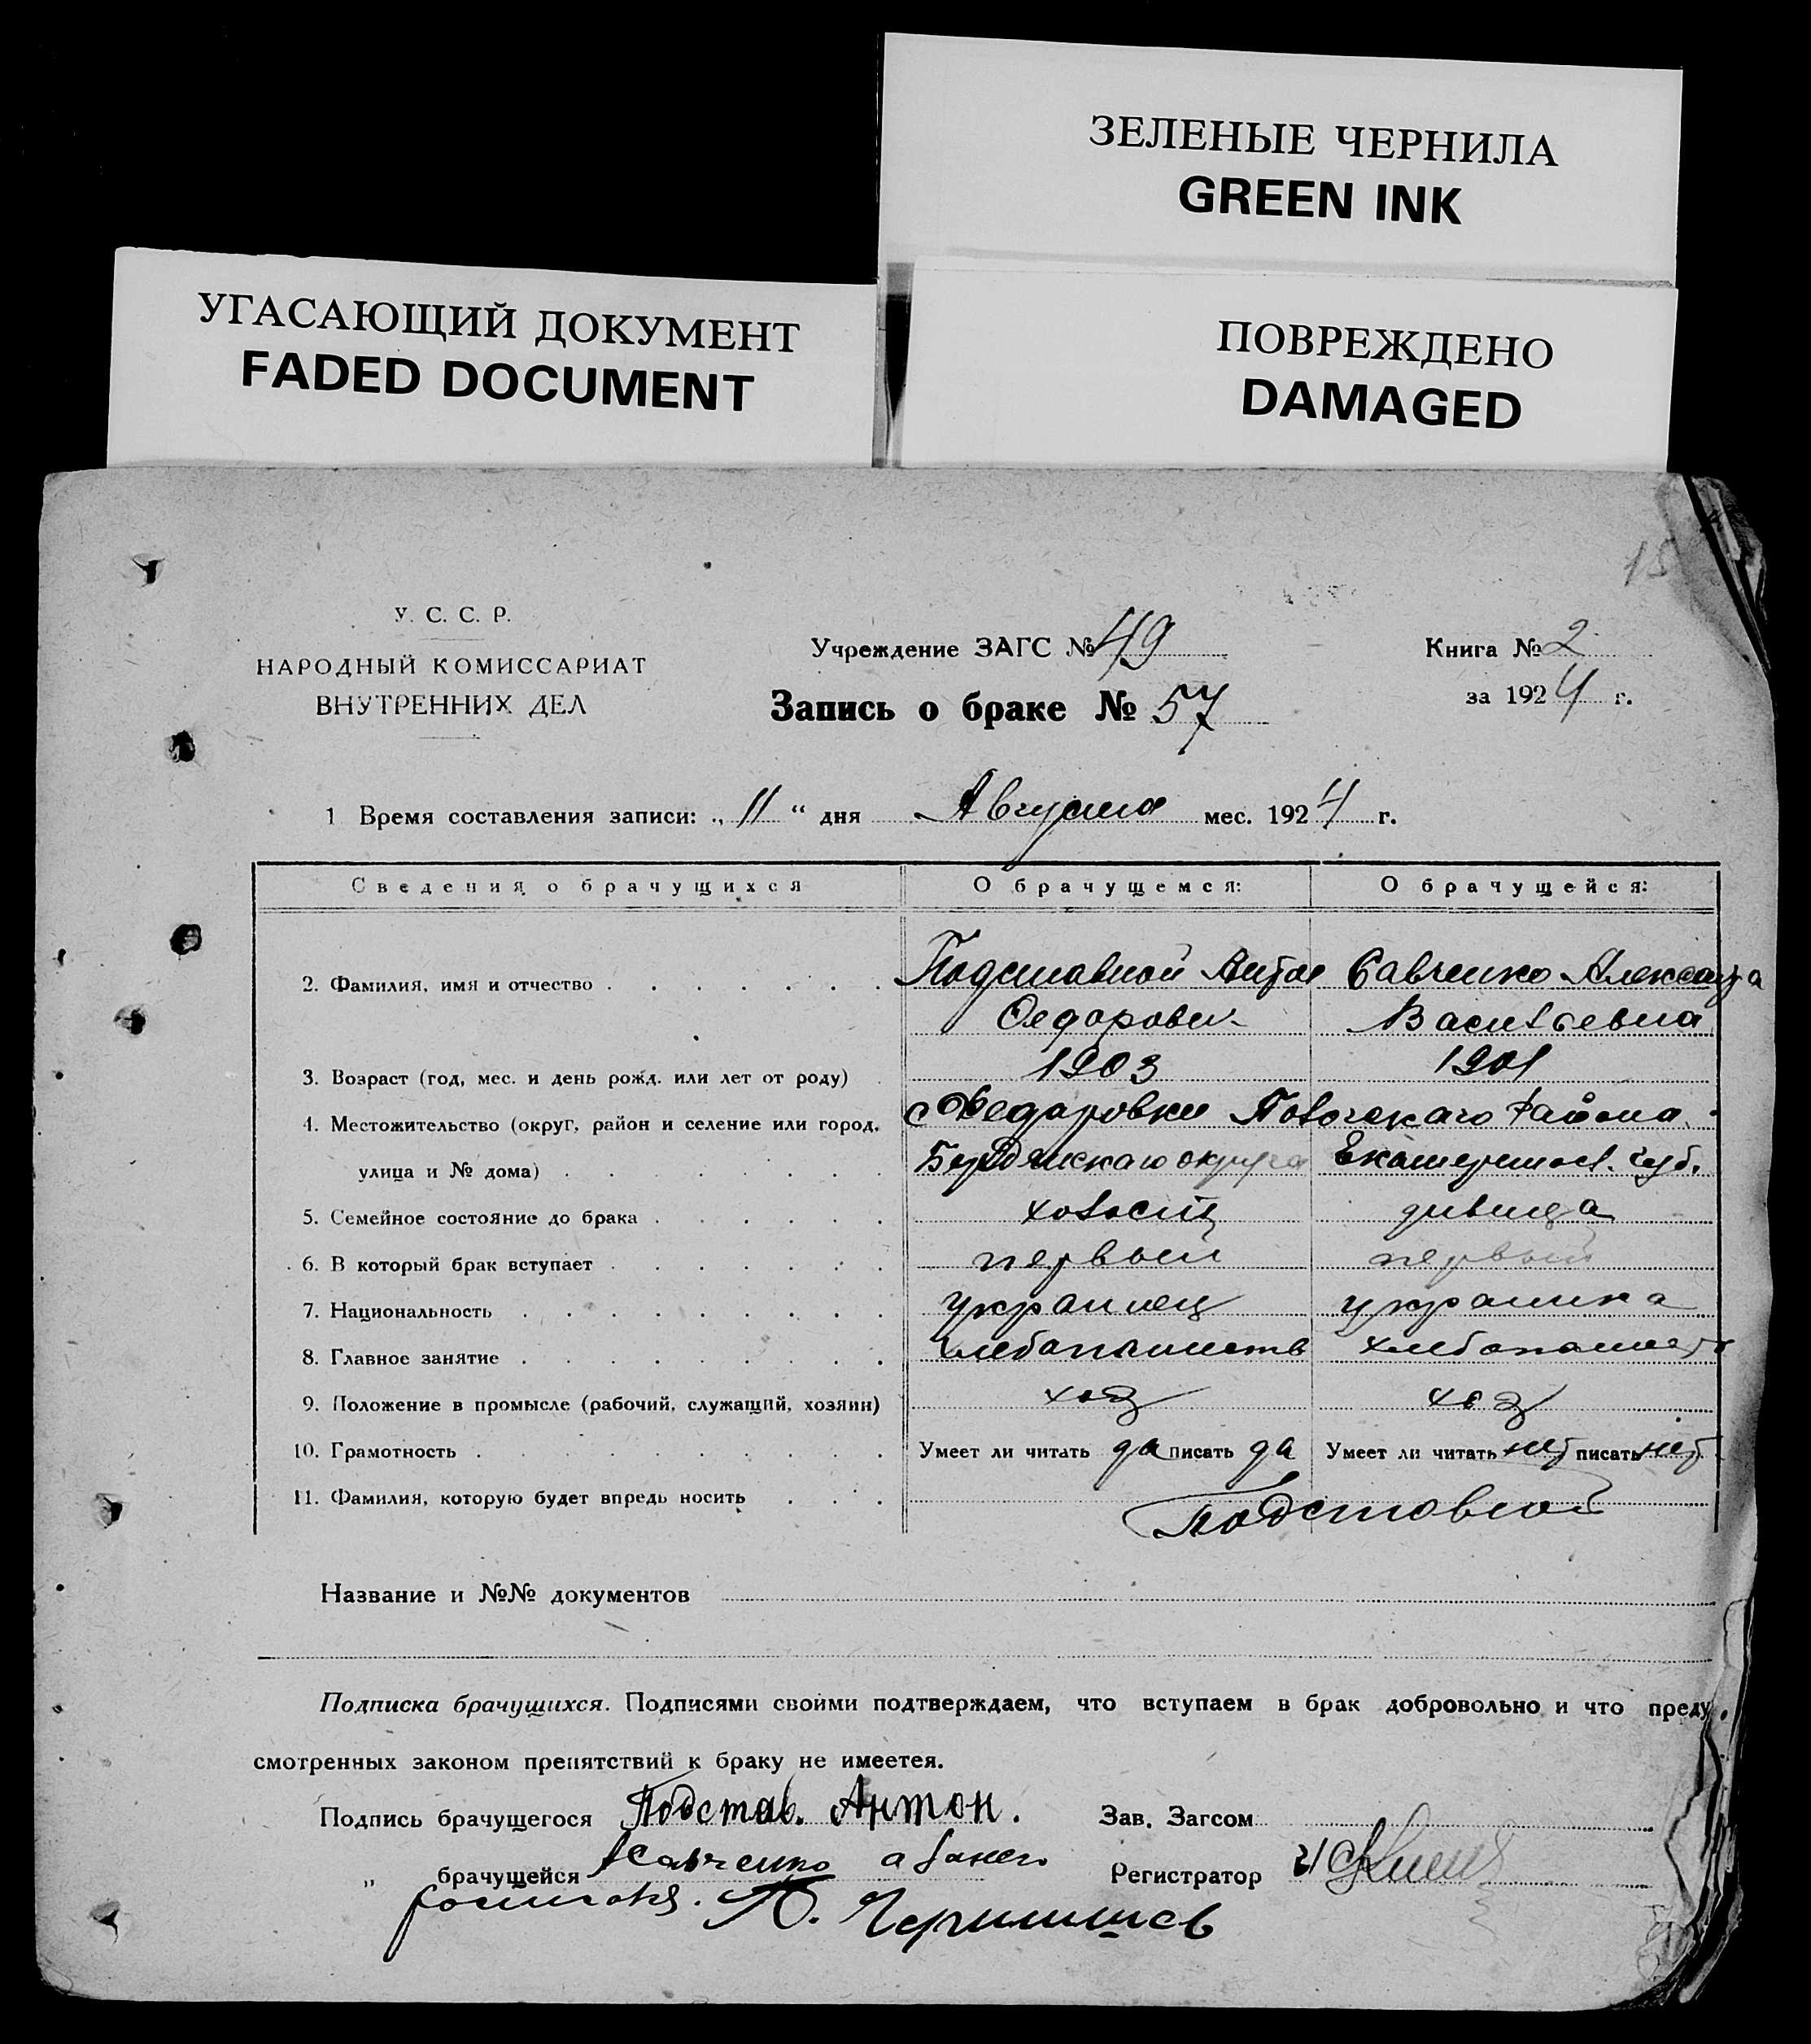 ЗЕЛЕНЫЕ ЧЕРНИЛА
GREEN INK
УГАСАЮЩИЙ ДОКУМЕНТ
FADED DOCUMENT
ПОВРЕЖДЕНО
DAMAGED
15
У. С. С. Р.
НАРОДНЫЙ КОМИССАРИАТ
ВНУТРЕННИХ ДЕЛ
Учреждение ЗАГС № 49
Книга № 2
Запись о браке № 57
за 1924 г.
1 Время составления записи: „ 11 “ дня Августа мес. 1924 г.
Сведения о брачущихся О брачущемся: О брачущейся:
2. Фамилия, имя и отчество Подставной Антон Савченко Александра
Федорович Васильевна
3. Возраст (год, мес. и день рожд. или лет от роду) 1903 1901
4. Местожительство (округ, район и селение или город, с Федоровки Района
улица и № дома) Бердянскаго округа Екатериносл. губ.
5. Семейное состояние до брака холост дивица
6. В который брак вступает первый первый
7. Национальность украинец украинка
8. Главное занятие
9. Положение в промысле (рабочий, служащий, хозяин) хоз хоз
10. Грамотность Умеет ли читать да писать да Умеет ли читать нет писать нет
11. Фамилия, которую будет впредь носить Подставной
Название и №№ документов
Подписка брачущихся. Подписями своими подтверждаем, что вступаем в брак добровольно и что преду-
смотренных законом препятствий к браку не имеетея.
Подпись брачущегося Подстав. Антон. Зав. Загсом
„ брачущейся Савченко а Регистратор